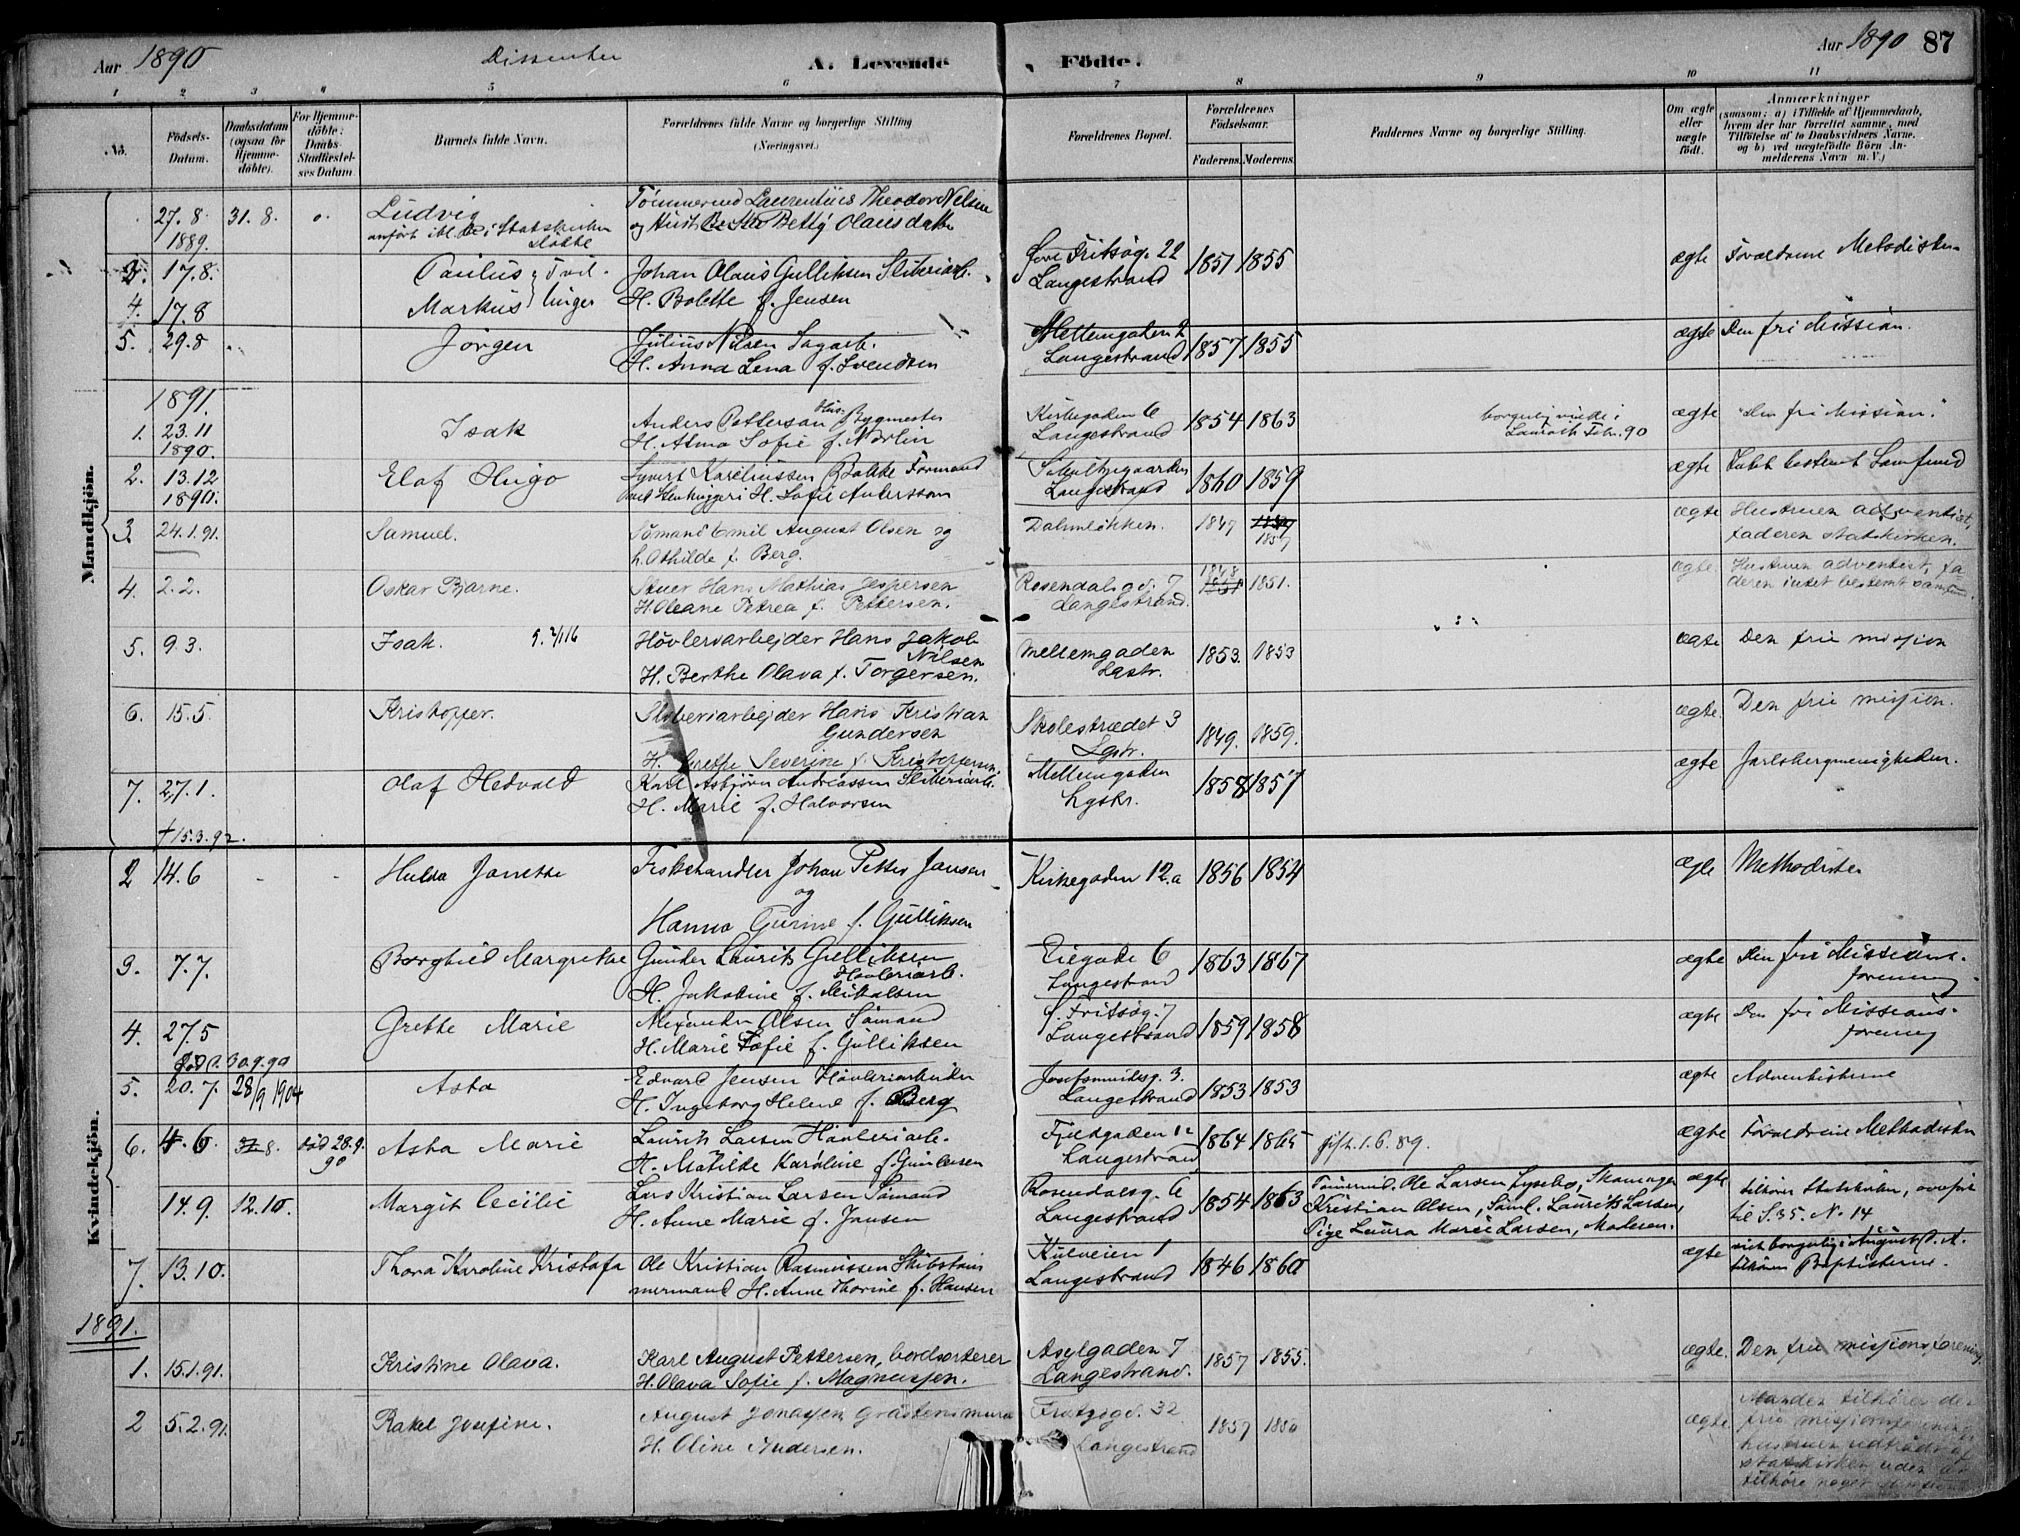 Aar 1890
Dissenter
A. Levende
Födte.
Aar 1890
87
1 2 3 4 5 6 7 8 9 10 11
No.
Födsels-Datum.
Daabsdatum (ogsaa for Hjemmedöbte).
For Hjemmedöbte: Daabs-Stadfæstelses Datum
Barnets fulde Navn.
Forældrenes fulde Navne og borgerlige Stilling (Næringsvei.)
Forældrenes Bopæl.
Forældrenes Födselsaar.
Faderens. Moderens.
Faddernes Navne og borgerlige Stilling.
Om ægte eller uægte födt.
Anmærkninger
(saasom: a) i Tilfælde af Hjemmedaab, hvem der har forrettet samme, med Tilföielse af to Daabsvidners Navne. og b) ved uægtefödte Börn Anmelderens Navn m. V.)
Mandkjön.
27.8. 1889. 31.8. Ludvig
anført i Statskirken
Tömmermd Laurentius Theodor Nilsen
og Hust. Betty Olausdatter
3. 17.8. Paulus } Tvil-
4. 17.8 Markus } linger
Johan Olaus Gulliksen Sliberiarb.
H. Bolette f. Jensen
Fritsög. 22
Langestrand
1851 1855
ægte
Forældrene Metodister
5. 29.8 Jörgen
Julius Nilsen Sagarb.
H. Anna Lena f. Svendsen
Mellemgaden 2
Langestrand
1857. 1855
ægte
Den fri Mission.
1891.
1. 23.11 1890. Isak
Anders Petterson Bygmester
H. Alma Sofie f. Norlin
Kirkegaden 6
Langestrand
1854 1863
borgerlig viede i
Laurvik Febr. 90
ægte
"Den fri Mission."
2. 13.12 1890. Elaf Hugo
Syvert Kareliussen Bakke Formand
ved Stenhuggeri H. Sofie Andersson
Langestrand
1860 1859
ægte
Intet bestemt Samfund
3. 24.1.91. Samuel.
Sömand Emil August Olsen og
h. Othilde f. Berg.
Dalmelökken.
1847 1857
ægte
Hustruen adventist,
faderen statskirken.
4. 2.2. Oskar Bjarne.
Stuer Hans Mathias Jespersen
H. Oleane Petrea f. Pettersen.
Rosendalsgd. 7
Langestrand.
1848 1851.
ægte.
Hustruen adventist, fa-
deren intet bestemt samfund.
5. 9.3. Isak.
Hövleriarbejder Hans Jakob
Nilsen
H. Berthe Olava f. Torgersen.
Mellemgaden
Lgstr.
1853. 1853
ægte
Den frie misjion
6. 15.5. Kristoffer.
Sliberiarbejder Hans Kristian
Gundersen
H. Grethe Severine f. Kristoffersen
Skolestrædet 3
Lgstr.
1849. 1859.
ægte.
Den frie misjion.
7. 27.1. Olaf Hedvald
† 15.3.92.
Karl Asbjörn Andreassen Sliberiarb.
H. Marie f. Halvorsen
Mellemgaden
Lgstr.
1858 1857
ægte
Jarlsbergmenigheden.
Kvindekjön.
2 14.6 Hulda Janette
Fiskehandler Johan Petter Jansen
og
Hanna Gurine f. Gulliksen
Kirkegaden 12.a
1856 1854
ægte
Methodister
3. 7.7. Borghild Margrethe
Gunder Laurits Gulliksen
Hövleriarb.
H. Jakobine f. Mikalsen
Eiegade 6
Langestrand
1863 1867
ægte
Den fri Missions-
forening
4. 27.5 Grethe Marie
Död d. 30.9.90
Alexander Olsen Sömand
H. Marie Sofie f. Gulliksen
Fritsög. 7
Langestrand
1859 1858
ægte
Den fri Missions-
forening
5. 20.7. 28/9 1904 Asta
Edvard Jensen Hövleriarbeider
H. Ingeborg Helene f. Berg
Langestrand
1853 1853
ægte
Adventisterne
6. 4.6 8. död 28.9.90 Asta Marie
Laurits Larsen Hövleriarb.
H. Matilde Karoline f. Gundersen
Fjeldgaden 12
Langestrand
1864 1865
gift. 1.6.89.
ægte
Forældrene Methodister
14.9. 12.10. Margit Cecilie
Lars Kristian Larsen Sömand
H. Anne Marie f. Jansen
Rosendalsg. 6
Langestrand
1854 1863
Tömmermd. Ole Larsen Lysebo,
Kristian Olsen, Söml. Laurits Larsen,
Pige Laura Marie Larsen, Moderen.
ægte
tilhörer Statskirken, overfört
til S. 35. N. 14
7. 13.10. Thora Karoline Kristofa
Ole Kristian Rasmussen Skibstöm-
mermand H. Anne Thorine f. Hansen
Kulveien 1
Langestrand
1846 1860
ægte
viet borgerlig i August d. A.
tilhörer Baptisterne.
1891.
1. 15.1.91. Kristine Olava.
Karl August Pettersen, bordsorterer
H. Olava Sofie f. Magnusjen.
Asylgaden 7
Langestrand.
1857 1855.
ægte.
Den frie misjionsforening.
2 5.2.91. Rakel Josefine.
August Jonasjen Graastensmurer
H. Oline Andersen.
32
Langestrand
1857
ægte
Manden tilhörer den
frie misjionsforening
hustruen udtraadt af
statskirken uden at
tilhöre noget